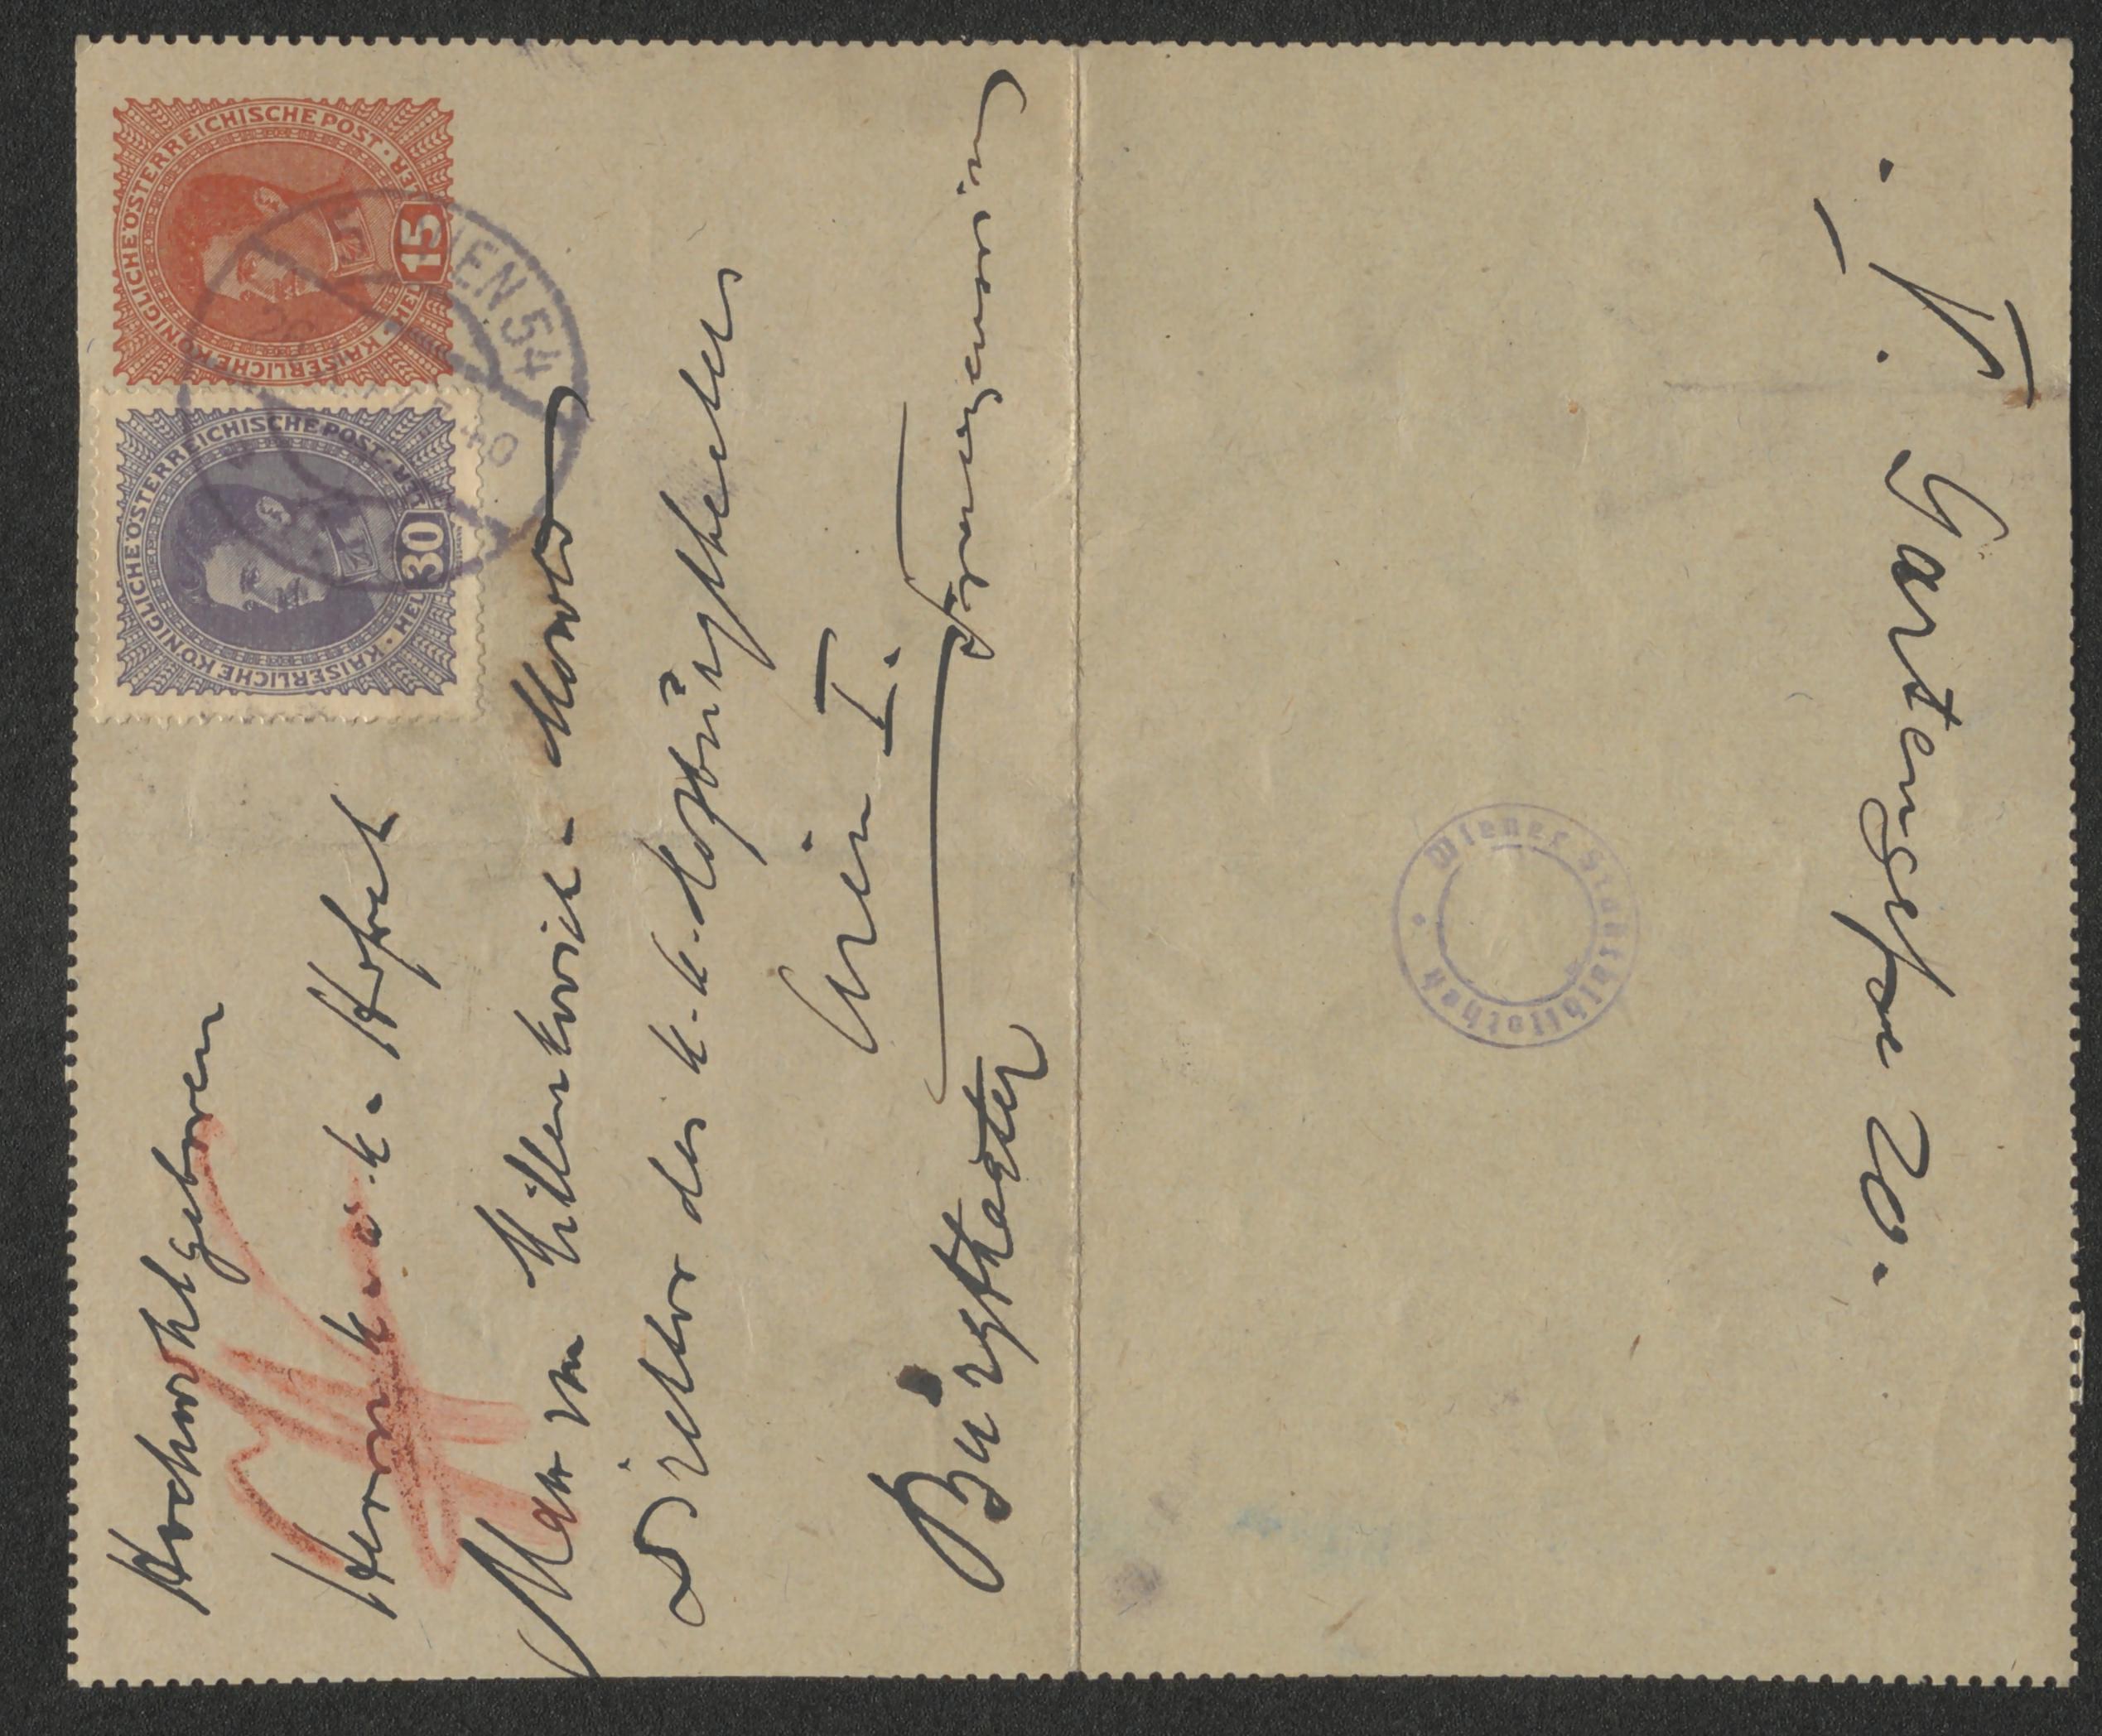 Hochwohlgeboren
Herrn k. u. k. Hofrat
Max von Millenkovich-Morold
Direktor des k. k. Hofburgtheaters
Wien I.
Burgtheater
Franzensring
KAISERLICHE KÖNIGLICHE ÖSTERREICHISCHE POST
15 HELLER
KAISERLICHE KÖNIGLICHE ÖSTERREICHISCHE POST
30 HELLER
WIEN 54
Wiener Stadtbibliothek
V. Gartengasse 20.